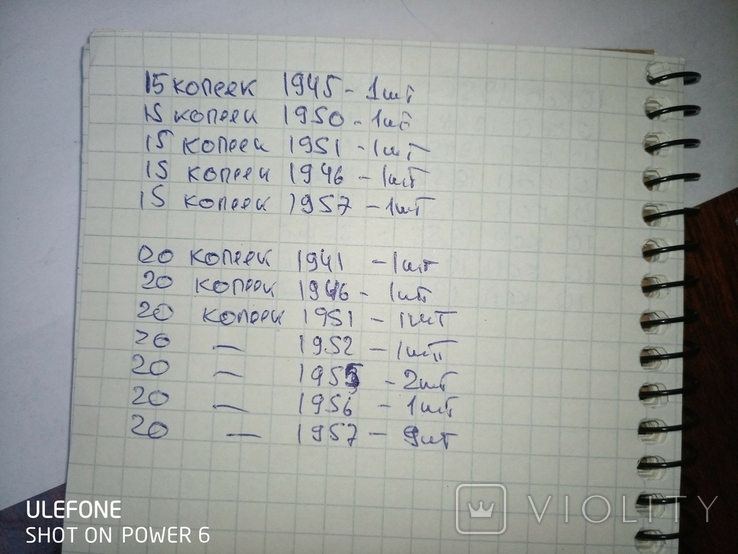 15 копеек 1945 - 1шт
15 копеек 1950 - 1шт
15 копеек 1951 - 1шт
15 копеек 1946 - 1шт
15 копеек 1957 - 1шт
20 копеек 1941 - 1шт
20 копеек 1946 - 1шт
20 копеек 1951 - 1шт
20 — 1952 - 1шт
20 — 1955 - 2шт
20 — 1956 - 1шт
20 — 1957 - 9шт
ULEFONE
SHOT ON POWER 6
VIOLITY